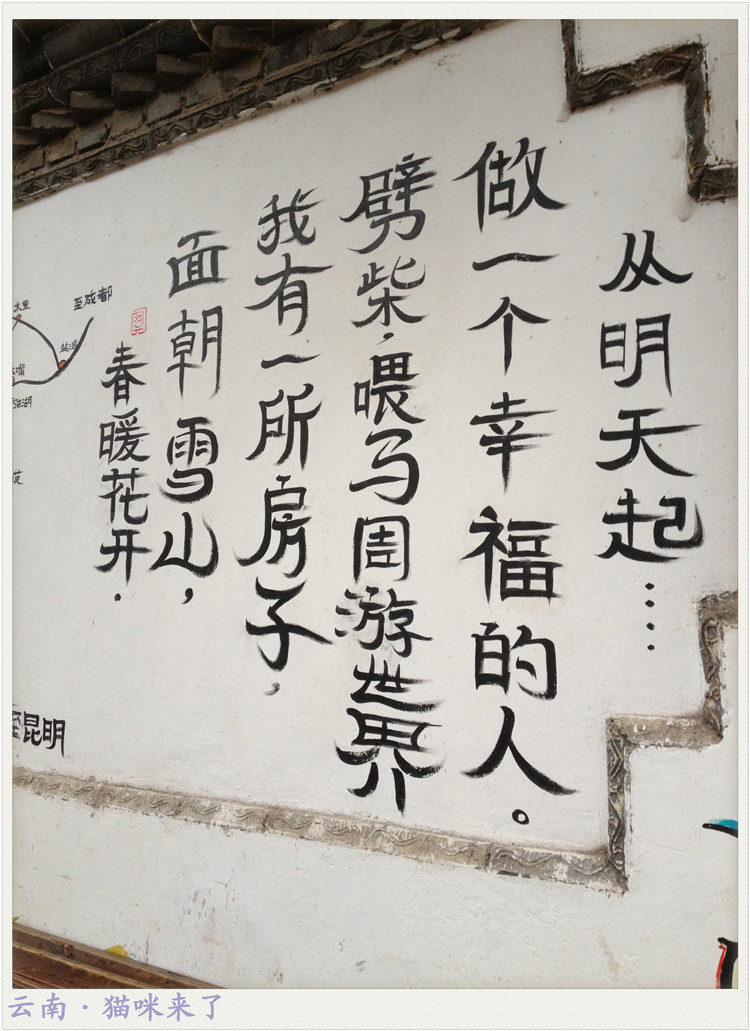 从明天起····
做一个幸福的人。
劈柴，喂马周游世界
我有一所房子，
面朝雪山，
春暖花开.
至成都
木里
盐源
至昆明
云南·猫咪来了